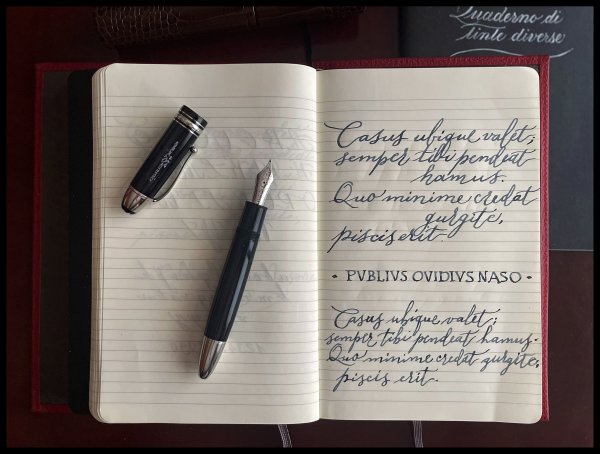 Quaderno di
tinte diverse
Casus ubique valet;
semper tibi pendeat
hamus.
Quo minime credat
gurgite,
piscis erit.
• PVBLIVS OVIDIVS NASO •
Casus ubique valet;
semper tibi pendeat hamus.
Quo minime credat gurgite,
piscis erit.